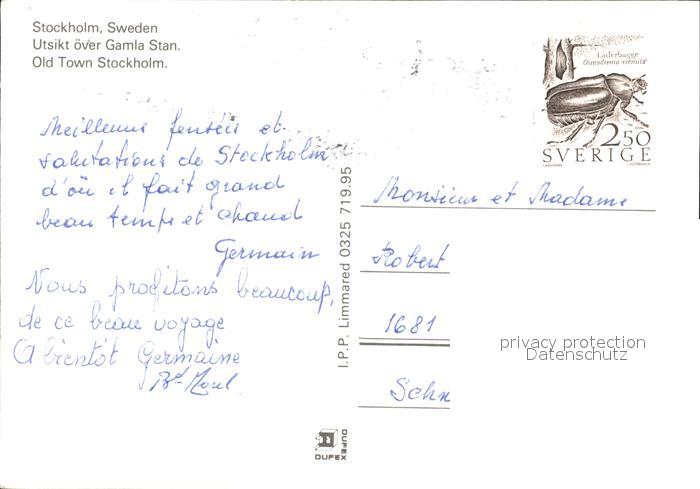 Stockholm, Sweden
Utsikt över Gamla Stan.
Old Town Stockholm.
Läderbagge
Osmoderma eremita
2.50
SVERIGE
Meilleures pensées et
salutations de Stockholm
d'où il fait grand
beau temps et chaud
Germain
Nous profitons beaucoup,
de ce beau voyage
A bientôt Germaine
I.P.P. Limmared 0325 719.95
Monsieur et Madame
Robert
1681
privacy protection
Datenschutz
DUFEX
DUFEX